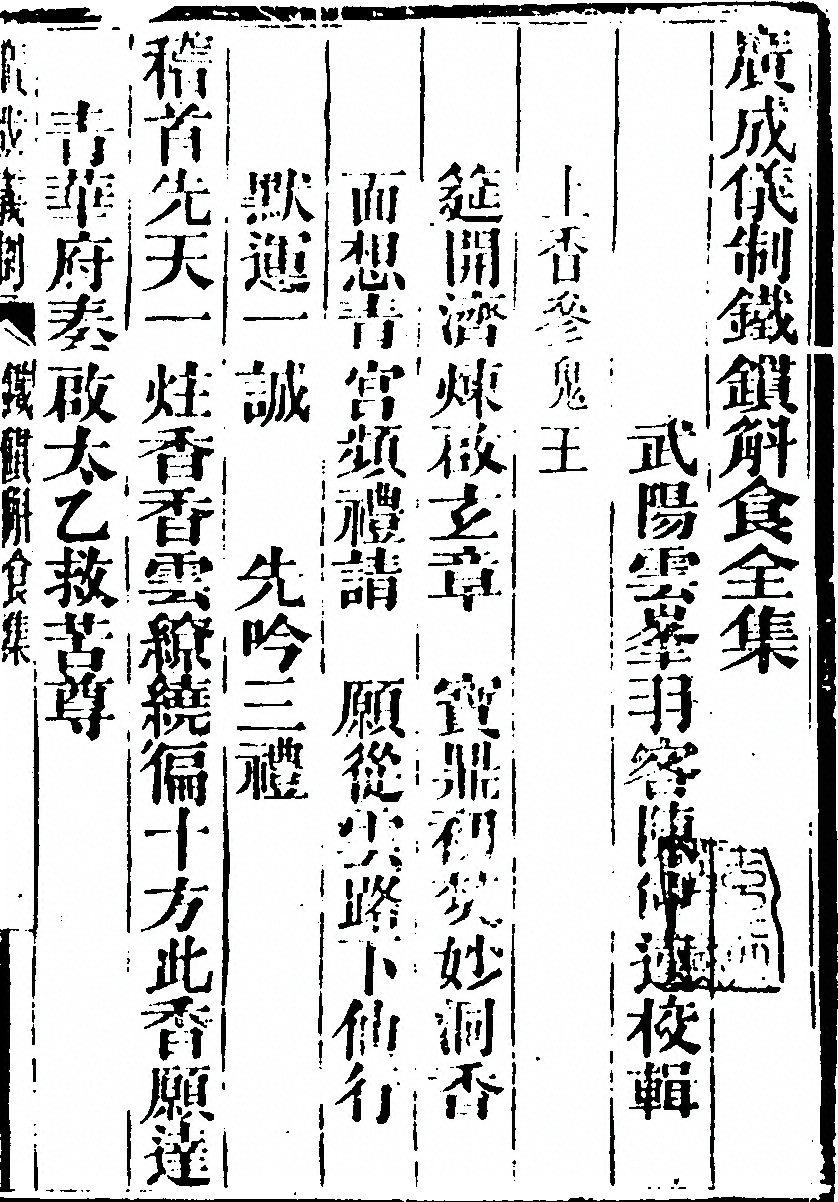 廣成儀制鐵鎖斛食全集
武陽雲峯羽客陳仲遠校輯
上香參鬼王
筵開濟煉啟玄章　寶鼎初焚妙洞香
面想青宮頻禮請　願從雲路下仙行
默運一誠　先吟三禮
稽首先天一炷香香雲繚繞徧十方此香願達
青華府奏啟太乙救苦尊
廣成儀制　鐵鎖斛食集